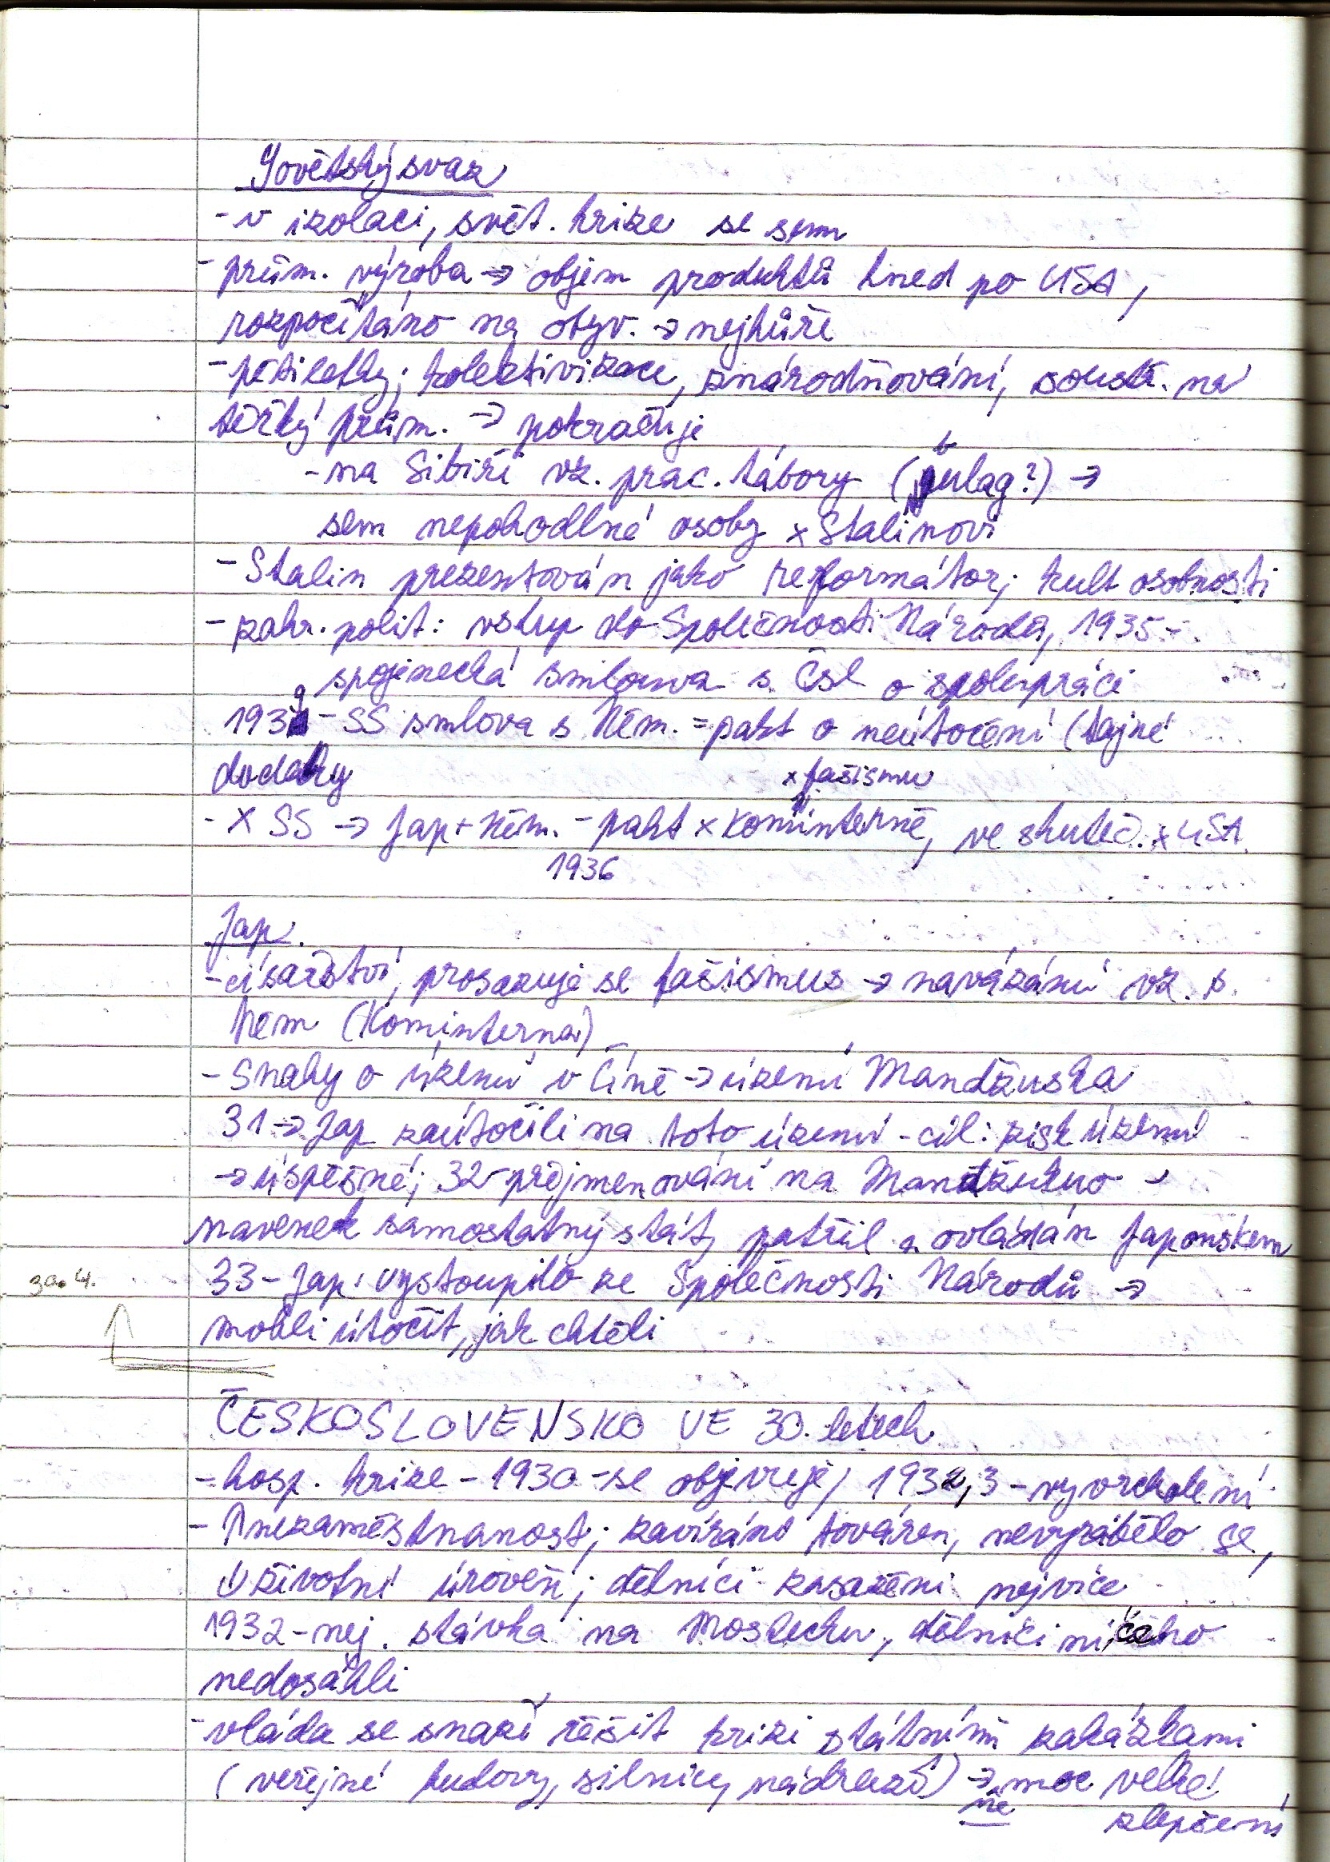 Sovětský svaz
- v izolaci, svět. krize se sem
- prům. výroba → objem produktů hned po USA,
rozpočítáno na obyv. → nejhůře
- pětiletky; kolektivizace, znárodňování, soustř. na
těžký prům. → pokračuje
- na Sibiři vz. prac. tábory (gulag?) →
sem nepohodlné osoby x Stalinovi
- Stalin prezentován jako reformátor; kult osobnosti
- zahr. polit: vstup do Společnosti Národů, 1935 -
spojenecká smlouva s Čsl o spolupráci
1939 - SS smlova s Něm. = pakt o neútočení (tajné
dodatky
x fašismu
- X SS → Jap + Něm. - pakt x Kominterně, ve skuteč. x USA
1936
Jap.
- císařství, prosazuje se fašismus → navázání vz. s
Něm (Kominterna)
- Snahy o území v Číně → území Mandžuska
31 → Jap zaútočili na toto území - cíl: zisk území
→ úspěšné; 32 - přejmenování na Mandžukuo -
navenek samostatný stát, patřil a ovládán Japonskem
33 - Jap. vystoupilo ze Společnosti Národů →
mohli útočit, jak chtěli
30. 4.
ČESKOSLOVENSKO VE 30. letech
- hosp. krize - 1930 - se objevuje, 1932,3 - vyvrcholení
- ↑ nezaměstnanost; zavíráno továren, nevyrábělo se,
↓ životní úroveň; dělníci zasaženi nejvíce
1932 - nej. stávka na Mostecku, dělníci ničeho
nedosáhli
- vláda se snaží řešit krizi státními zakázkami
(veřejné budovy, silnice, nádraží) → moc velké
ne
zlepšení